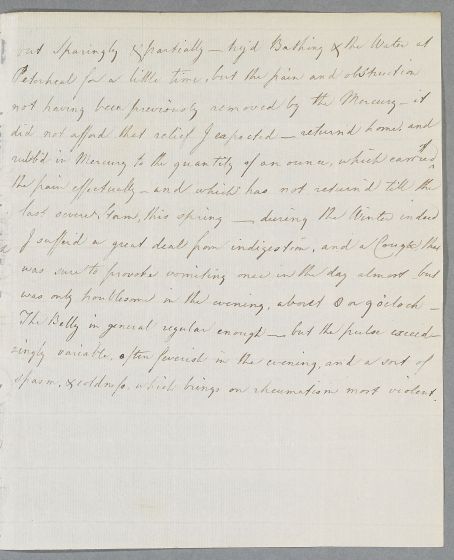 but sparingly & partially – try'd Bathing & the Water at
Peterhead for a little time, but the pain and obstruction
not having been previously removed by the Mercury – it
did not afford that relief I expected – returnd home, and
rubb'd in Mercury to the quantity of an ounce, which carried off
the pain effectually – and which has not return'd till the
last severe storm, this spring – during the Winter indeed
I suffer'd a great deal from indigestion, and a Cough that
was sure to provoke vomiting once in the day almost but
was only troublesome in the evening, about 8 or 9 o'clock –
The Belly in general regular enough – but the pulse exceed-
ingly variable, often feverish in the evening, and a sort of
spasm, & coldness, which brings on rheumatism most violent.